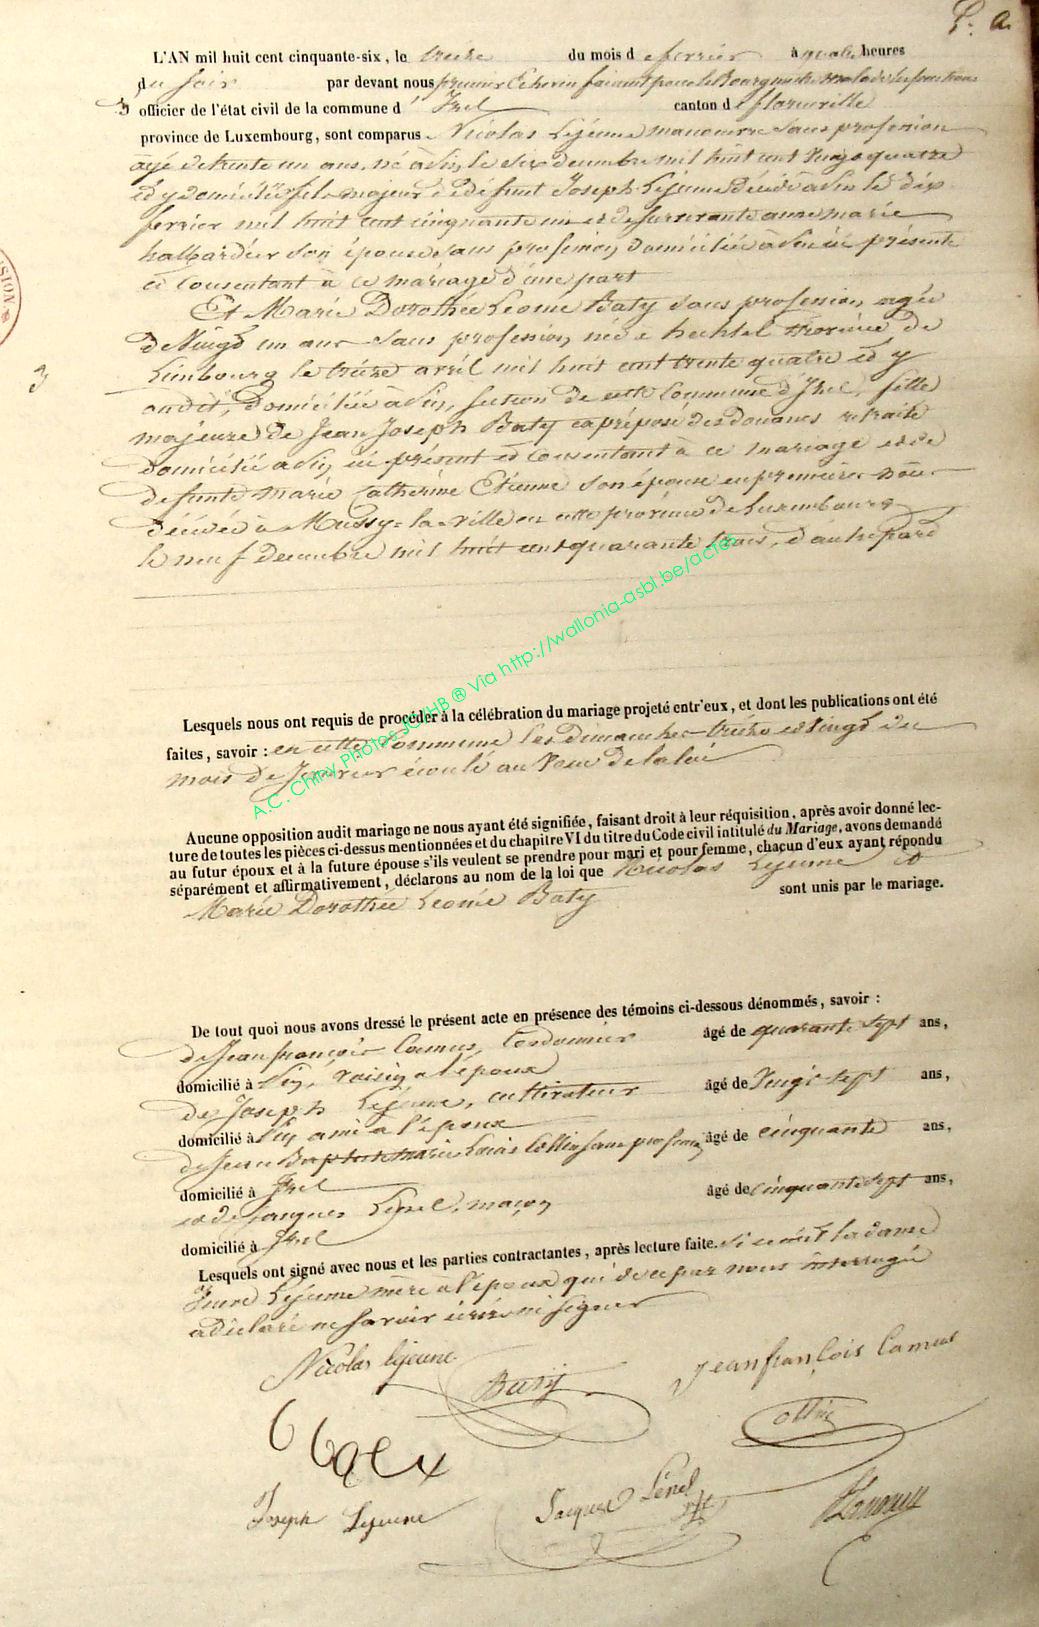 L'AN mil huit cent cinquante-six, le treize du mois d e fevrier à quatre heures
du soir par devant nous premier Echevin faisant pour le Bourgmestre malade les fonctions
3 officier de l'état civil de la commune d' Izel canton d e florenville
province de Luxembourg, sont comparus Nicolas Lejeune manoeuvre sans profession
âgé de trente un ans, né à Pin, le six decembre mil huit cent vingt quatre
et y domicilié fils majeur de défunt Joseph Lejeune décédé à Pin le dix
fevrier mil huit cent cinquante un et de survivante anne marie
halbardier son épouse sans profession, domiciliée à Pin ici présente
et consentant à ce mariage d'une part
Et Marie Dorothée Leonie Baty sans profession, agée
de Vingt un ans sans profession, née à hechtel Province de
3
Limbourg le treize avril mil huit cent trente quatre et y
domiciliée à Pin, section de cette Commune d'Izel, fille
majeure de Jean Joseph Baty préposé des douanes retraité
domicilié à Pin, ici présent et consentant à ce mariage et de
defunte marie Catherine Etienne son épouse en premiere noce
décédée à Mussy-la-ville en cette province de Luxembourg
le neuf Decembre mil huit cent quarante trois, d'autre part
Lesquels nous ont requis de procéder à la célébration du mariage projeté entr'eux, et dont les publications ont été
faites, savoir : en cette Commune les dimanches treize et vingt du
mois de Janvier écoulé au voeu de la loi
A.C. Chiny Photos JC/HB ® Via http://wallonia-asbl.be/actes
Aucune opposition audit mariage ne nous ayant été signifiée, faisant droit à leur réquisition, après avoir donné lec-
ture de toutes les pièces ci-dessus mentionnées et du chapitre VI du titre du Code civil intitulé du Mariage, avons demandé
au futur époux et à la future épouse s'ils veulent se prendre pour mari et pour femme, chacun d'eux ayant répondu
séparément et affirmativement, déclarons au nom de la loi que Nicolas Lejeune et
Marie Dorothée Leonie Baty sont unis par le mariage.
De tout quoi nous avons dressé le présent acte en présence des témoins ci-dessous dénommés, savoir :
de Jean françois Camus, Cordonnier âgé de quarante sept ans,
domicilié à Pin, voisin à l'époux
de Joseph Lejeune, cultivateur âgé de Vingt sept ans,
domicilié à Pin ami à l'époux
de Jean Baptiste marie Louis Collin sans profession âgé de cinquante ans,
domicilié à Izel
et de Jacques Lenel, maçon âgé de cinquante sept ans,
domicilié à Izel
Lesquels ont signé avec nous et les parties contractantes, après lecture faite. si ce n'est la dame
Lejeune mère à l'époux qui de ce par nous interrogée
a déclaré ne savoir écrire ni signer
Nicolas lejeune
Baty
Jean françois Camus
Joseph Lejeune
Jacques Lenel